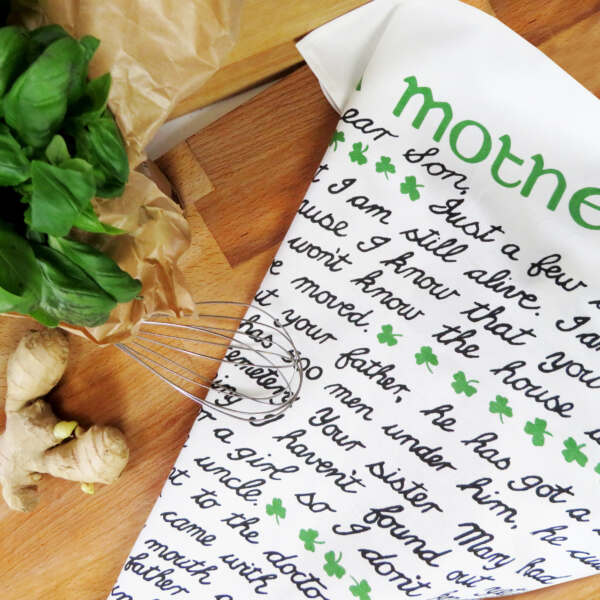 mothe
ear Son,
Just a few
t I am still alive. I am
ause I know that you
won't know the house
e moved.
t your father, he has got a
has 500 men under him, he cu
emetery
ing Your sister Mary had
haven't found out
a girl so I don't
uncle
t to the doctor
came with
mouth
father